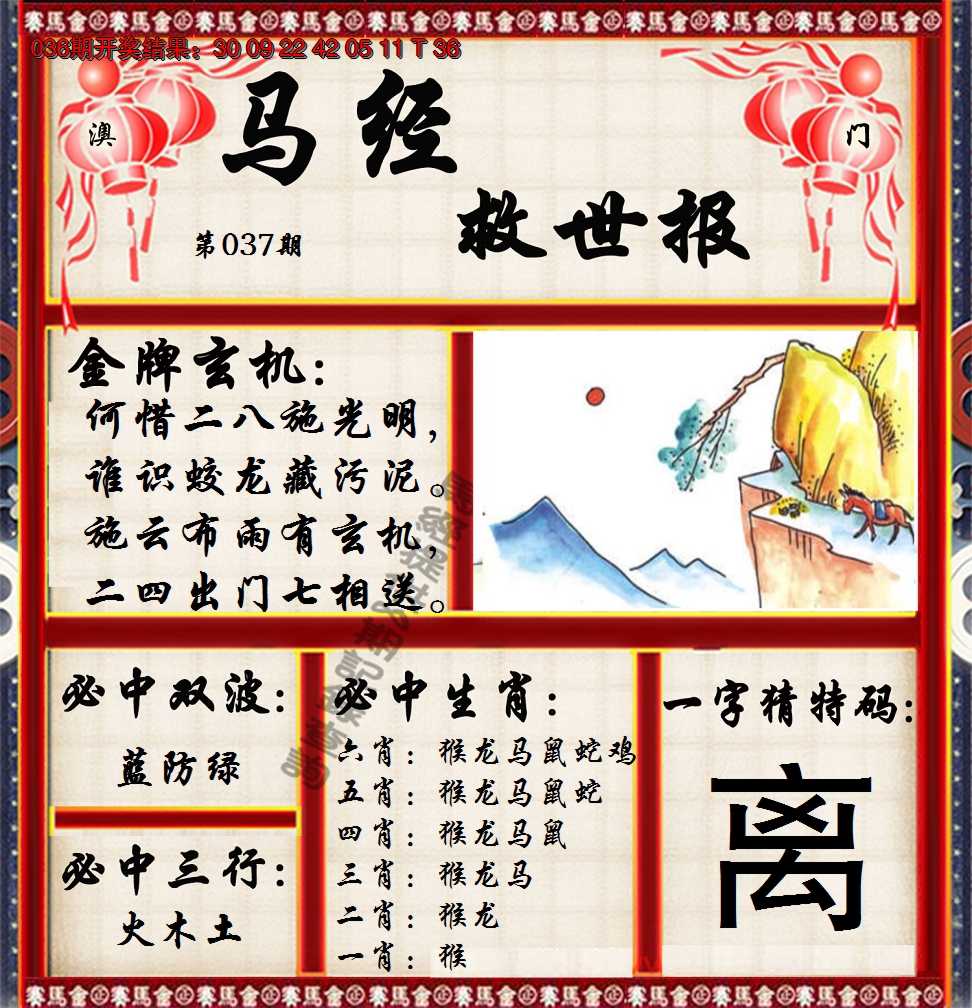 036期开奖结果：30 09 22 42 05 11 T 36
澳
门
马经
救世报
第037期
金牌玄机：
何惜二八施光明，
谁识蛟龙藏污泥。
施云布雨有玄机，
二四出门七相送。
必中双波：
蓝防绿
必中三行：
火木土
必中生肖：
六肖：猴龙马鼠蛇鸡
五肖：猴龙马鼠蛇
四肖：猴龙马鼠
三肖：猴龙马
二肖：猴龙
一肖：猴
一字猜特码：
离